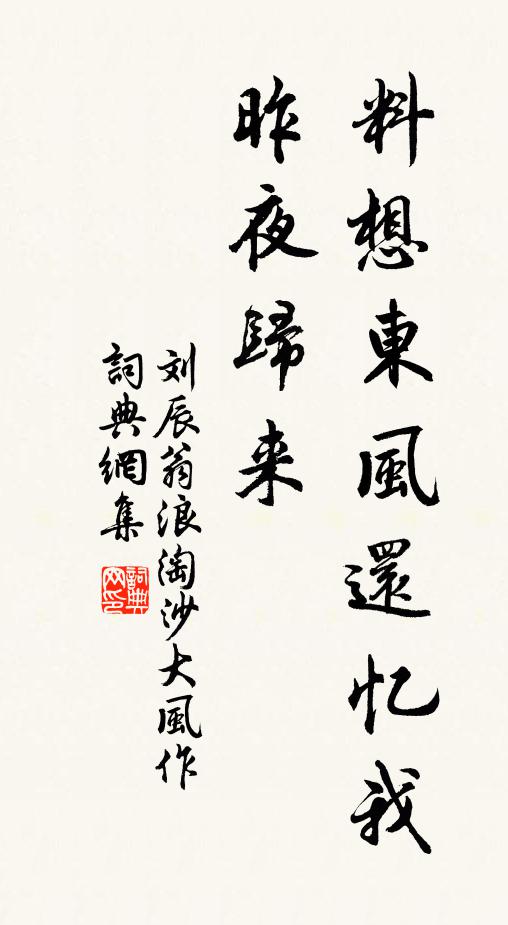 料想東風還忆我
昨夜歸来
刘辰翁浪淘沙大風作
詞典網集
詞典网印